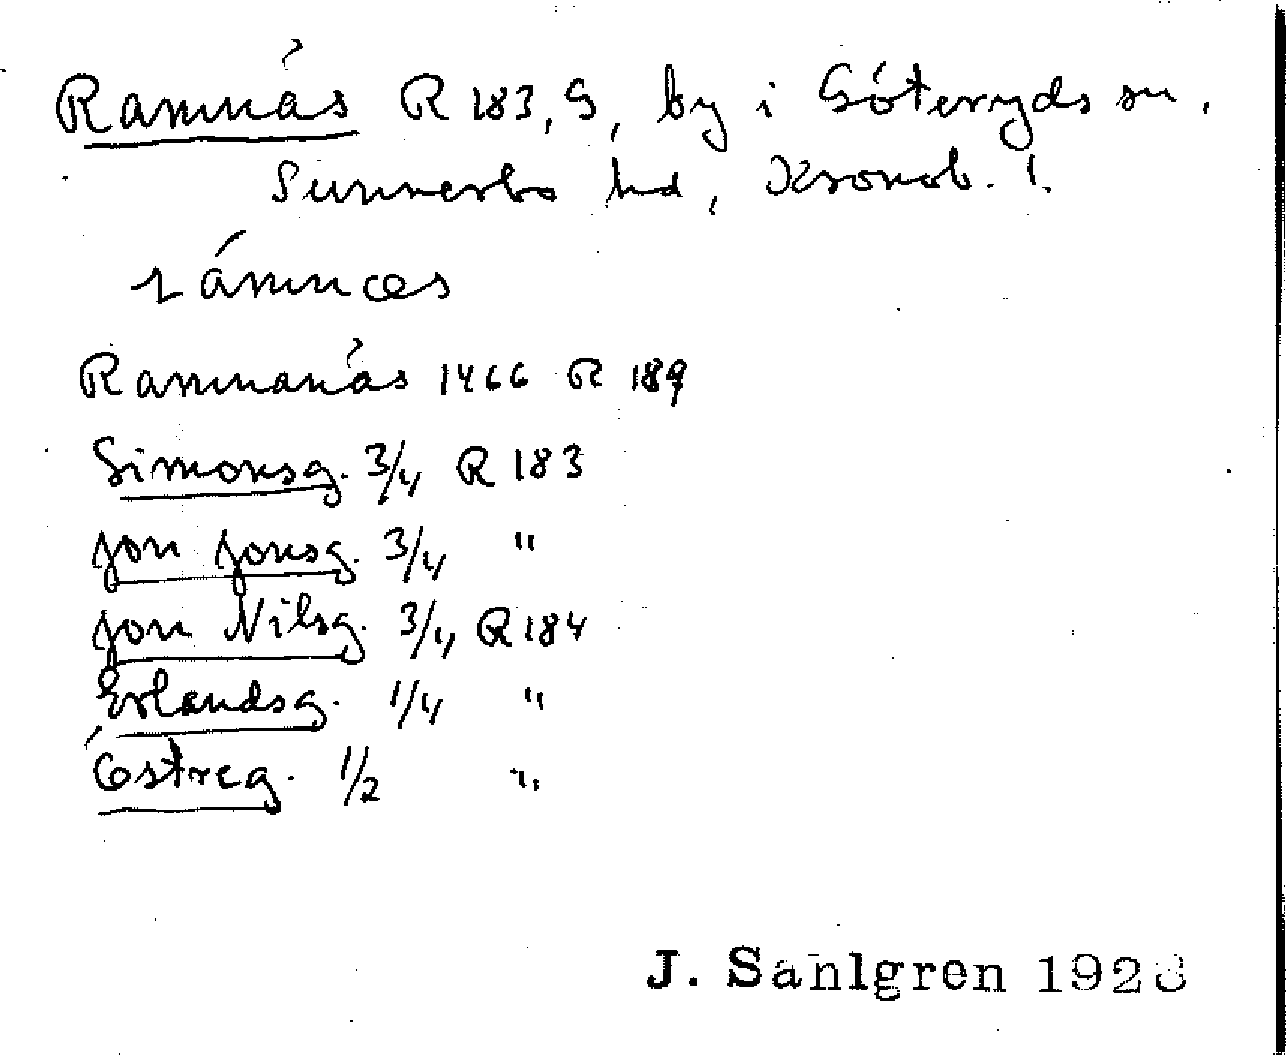 Ramnäs R 183, G, by i Göteryds sn,
Sunnerbo hd, Kronob. l.
rámnæs
Ramnanäs 1466 R 189
Simonsg. 3/4 R 183
Jon Jonsg. 3/4 "
Jon Nilsg. 3/4 R 184
Erlandsg. 1/4 "
Östreg. 1/2 "
J. Sahlgren